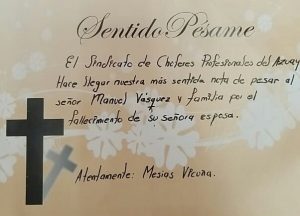 Sentido Pésame
El Sindicato de Choferes Profesionales del Azuay
Hace llegar nuestra más sentida nota de pesar al
señor Manuel Vásquez y familia por el
fallecimiento de su señora esposa.
Atentamente: Mesías Vicuña.